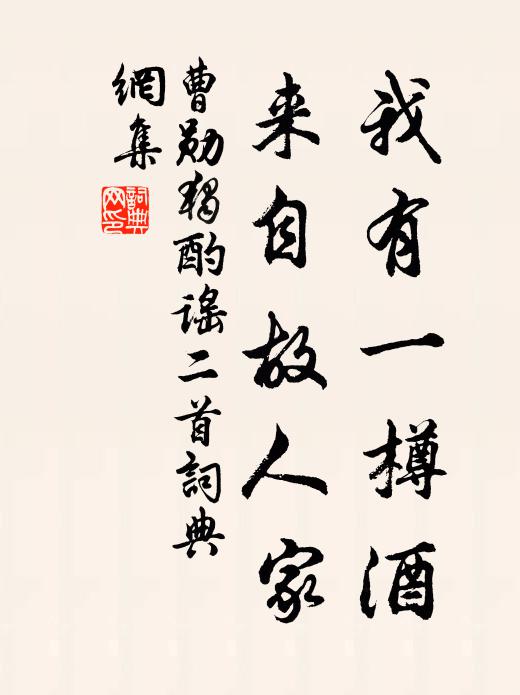 我有一樽酒
来自故人家
曹勛獨酌謠二首詞典
網集
詞典
网印